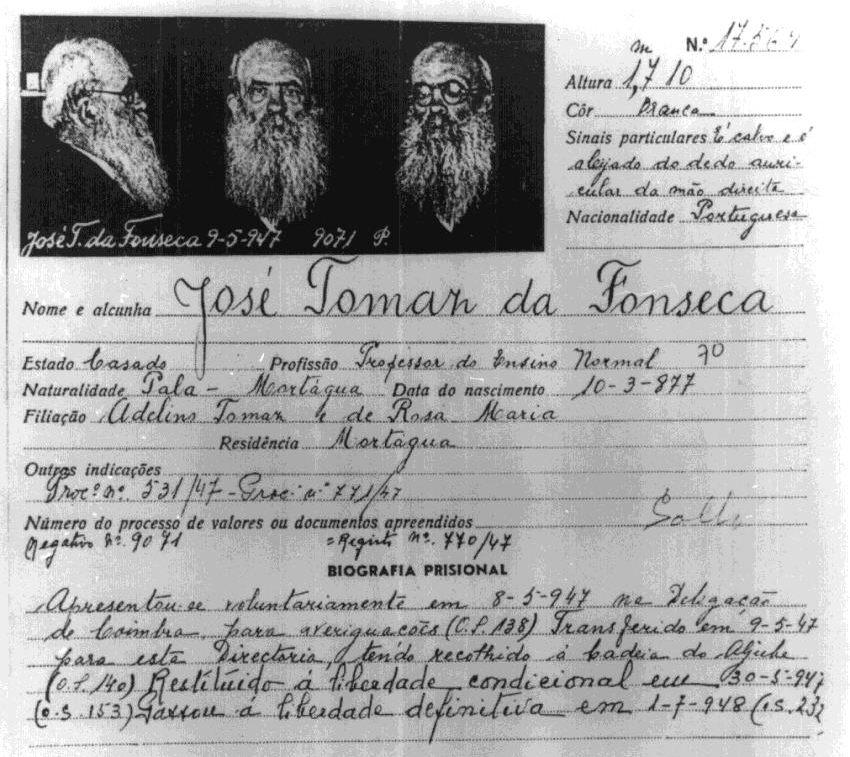 José T. da Fonseca 9-5-947 9071 P.
m N.º 17.564
Altura 1,710
Côr Branca
Sinais particulares É calvo e é
aleijado do dedo auri-
cular da mão direita
Nacionalidade Portuguesa
Nome e alcunha José Tomaz da Fonseca
Estado Casado Profissão Professor do Ensino Normal 70
Naturalidade Pala - Mortágua Data do nascimento 10-3-877
Filiação Adelino Tomaz e de Rosa Maria
Residência Mortágua
Outras indicações
Procº nº. 531/47 - Proc. nº 771/47
Número do processo de valores ou documentos apreendidos
Negativo Nº. 9071 = Registo Nº. 770/47
BIOGRAFIA PRISIONAL
Apresentou-se voluntariamente em 8-5-947 na Delegação
de Coimbra, para averiguacões (O.S. 138) Transferido em 9-5-47
para esta Directoria, tendo recolhido á Cadeia do Aljube
(O.S. 140) Restituido á liberdade condicional em 30-5-947
(O.S. 153) Passou á liberdade definitiva em 1-7-948 (O.S. 232